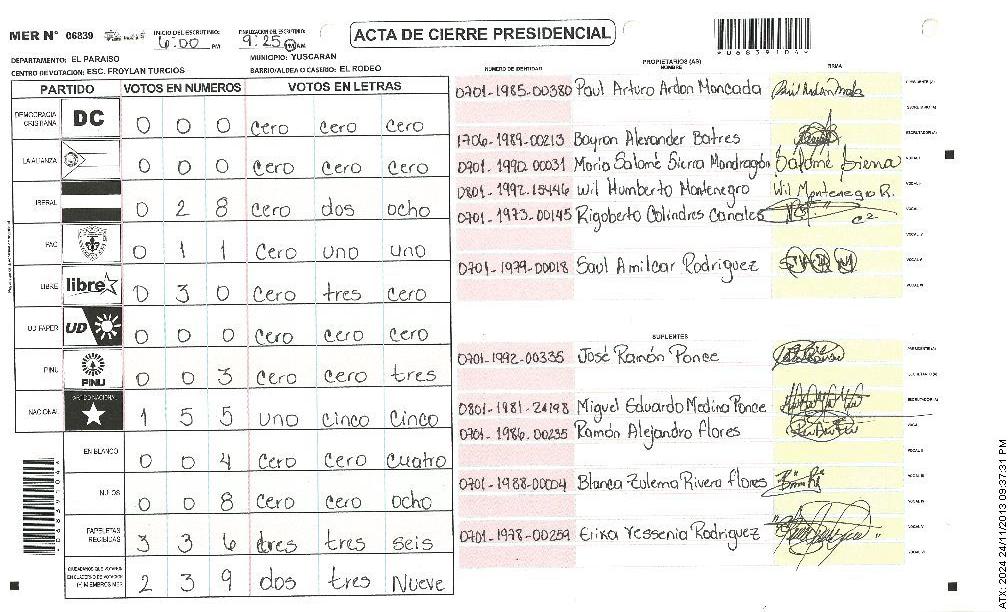 MER N° 06839
INICIO DEL ESCRUTINIO: 6:00 PM
FINALIZACION DEL ESCRUTINIO: 9:25 PM
ACTA DE CIERRE PRESIDENCIAL
*06839104*
DEPARTAMENTO: EL PARAISO
MUNICIPIO: YUSCARAN
CENTRO DE VOTACION: ESC. FROYLAN TURCIOS
BARRIO/ALDEA O CASERIO: EL RODEO
PARTIDO VOTOS EN NUMEROS VOTOS EN LETRAS
DEMOCRACIA CRISTIANA DC 0 0 0 cero cero cero
LA ALIANZA 0 0 0 cero cero cero
LIBERAL 0 2 8 cero dos ocho
PAC 0 1 1 cero uno uno
LIBRE libre 0 3 0 cero tres cero
UD FAPER UD 0 0 0 cero cero cero
PINU PINU 0 0 3 cero cero tres
NACIONAL 1 5 5 uno cinco cinco
EN BLANCO 0 0 4 cero cero cuatro
NULOS 0 0 8 cero cero ocho
PAPELETAS RECIBIDAS 3 3 6 tres tres seis
CIUDADANOS QUE VOTARON EN CUADERNO DE VOTACION (+) MIEMBROS MER 2 3 9 dos tres Nueve
PROPIETARIOS (AS)
NUMERO DE IDENTIDAD NOMBRE FIRMA
0701-1985-00380 Paul Arturo Ardon Moncada PRESIDENTE (A)
SECRETARIO (A)
1706-1989-00213 Bayron Alexander Batres ESCRUTADOR (A)
0701-1990-00031 Maria Salomé Sierra Mondragón Salomé Sierra VOCAL I
0801-1992-15446 Wil Humberto Montenegro Wil Montenegro R. VOCAL II
0701-1973-00145 Rigoberto Colindres Canales VOCAL III
VOCAL IV
0701-1979-00018 Saul Amilcar Rodriguez VOCAL V
VOCAL VI
SUPLENTES
0701-1992-00335 José Ramón Ponce PRESIDENTE (A)
SECRETARIO (A)
0801-1981-24198 Miguel Eduardo Medina Ponce ESCRUTADOR (A)
0701-1986-00235 Ramón Alejandro Flores VOCAL I
VOCAL II
0701-1988-00004 Blanca Zulema Rivera Flores VOCAL III
VOCAL IV
0701-1978-00259 Erika Yessenia Rodriguez VOCAL V
VOCAL VI
ATX: 2024 24/11/2013 09:37:31 PM